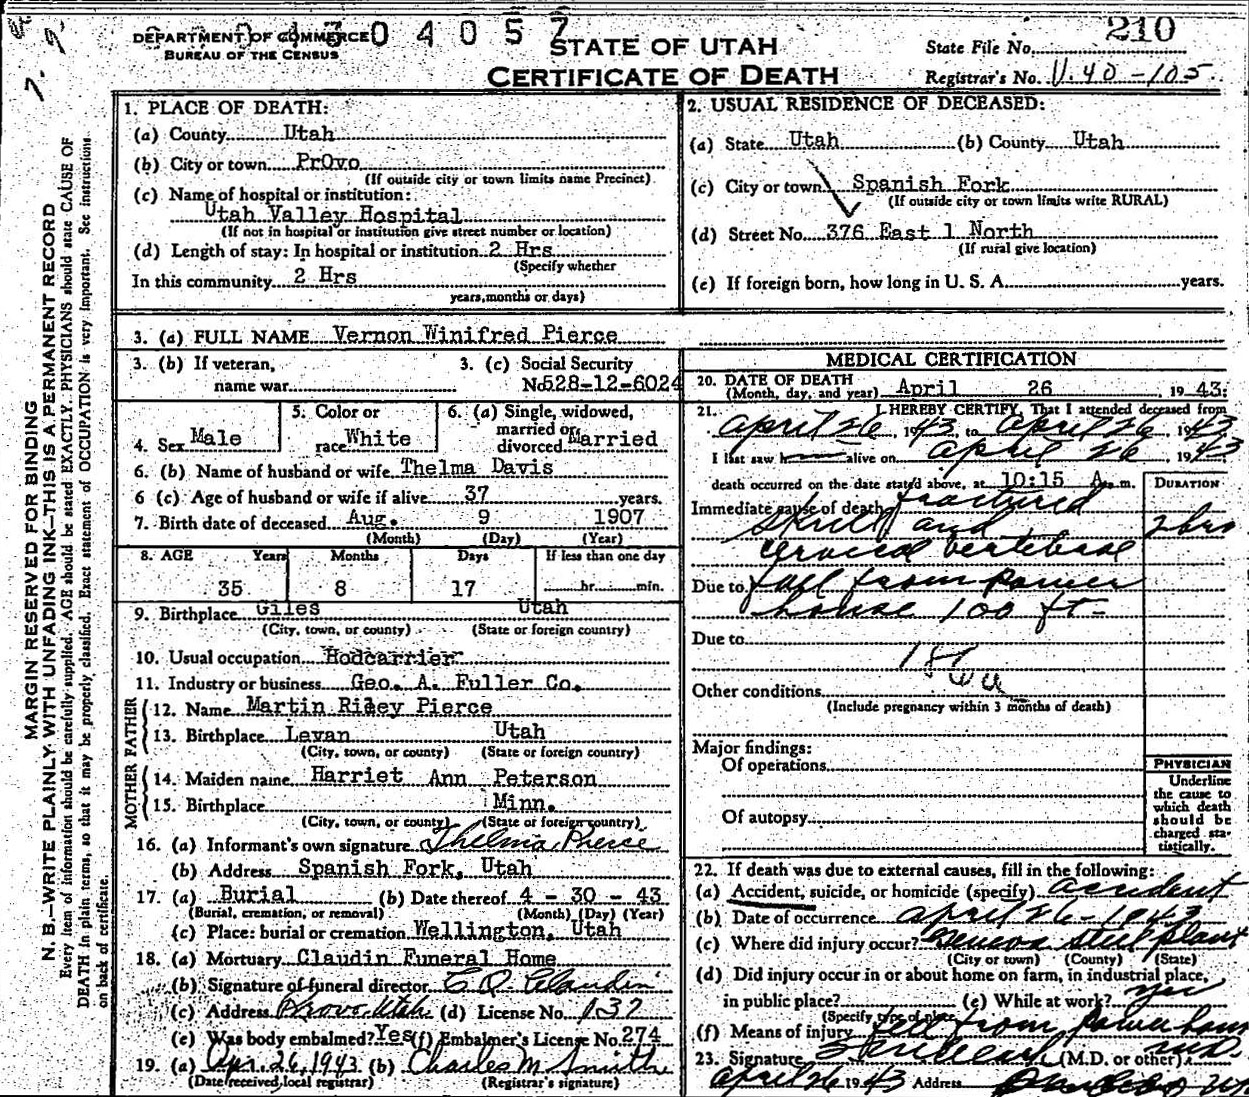 DEPARTMENT OF COMMERCE
BUREAU OF THE CENSUS
304057
STATE OF UTAH
CERTIFICATE OF DEATH
210
State File No.
Registrar's No. U.40-105
MARGIN RESERVED FOR BINDING
N. B.—WRITE PLAINLY WITH UNFADING INK—THIS IS A PERMANENT RECORD
Every item of information should be carefully supplied. AGE should be stated EXACTLY. PHYSICIANS should state CAUSE OF
DEATH in plain terms, so that it may be properly classified. Exact statement of OCCUPATION is very important. See instructions
on back of certificate.
1. PLACE OF DEATH:
(a) County Utah
(b) City or town PrOvo
(If outside city or town limits name Precinct)
(c) Name of hospital or institution:
Utah Valley Hospital
(If not in hospital or institution give street number or location)
(d) Length of stay: In hospital or institution 2 Hrs
(Specify whether
In this community 2 Hrs
years, months or days)
2. USUAL RESIDENCE OF DECEASED:
(a) State Utah (b) County Utah
(c) City or town Spanish Fork
(If outside city or town limits write RURAL)
(d) Street No. 376 East 1 North
(If rural give location)
(e) If foreign born, how long in U. S. A. years.
3. (a) FULL NAME Vernon Winifred Pierce
3. (b) If veteran, name war
3. (c) Social Security
No. 528-12-6024
4. Sex Male
5. Color or race White
6. (a) Single, widowed, married or divorced Married
6. (b) Name of husband or wife Thelma Davis
6 (c) Age of husband or wife if alive 37 years.
7. Birth date of deceased Aug. 9 1907
(Month) (Day) (Year)
8. AGE Years Months Days If less than one day
35 8 17 hr. min.
9. Birthplace Giles Utah
(City, town, or county) (State or foreign country)
10. Usual occupation Hodcarrier
11. Industry or business Geo. A. Fuller Co.
FATHER
12. Name Martin Riley Pierce
13. Birthplace Levan Utah
(City, town, or county) (State or foreign country)
MOTHER
14. Maiden name Harriet Ann Peterson
15. Birthplace Minn.
(City, town, or county) (State or foreign country)
16. (a) Informant's own signature Thelma Pierce
(b) Address Spanish Fork, Utah
17. (a) Burial (b) Date thereof 4 - 30 - 43
(Burial, cremation, or removal) (Month) (Day) (Year)
(c) Place: burial or cremation Wellington, Utah
18. (a) Mortuary Claudin Funeral Home
(b) Signature of funeral director C. D. Claudin
(c) Address Provo Utah (d) License No. 137
(e) Was body embalmed? Yes (f) Embalmer's License No. 274
19. (a) Apr. 26, 1943 (b) Charles M Smith
(Date received local registrar) (Registrar's signature)
MEDICAL CERTIFICATION
20. DATE OF DEATH
(Month, day, and year) April 26 1943:
21. I HEREBY CERTIFY, That I attended deceased from
April 26, 1943, to April 26, 1943
I last saw h alive on April 26 1943
death occurred on the date stated above, at 10:15 A. m.
DURATION
Immediate cause of death fractured
skull and 2 hrs
cervical vertebrae
Due to fall from power
house 100 ft-
Due to
Other conditions
(Include pregnancy within 3 months of death)
Major findings:
Of operations
Of autopsy
PHYSICIAN
Underline
the cause to
which death
should be
charged sta-
tistically.
22. If death was due to external causes, fill in the following:
(a) Accident, suicide, or homicide (specify) accident
(b) Date of occurrence April 26-1943
(c) Where did injury occur? Geneva steel plant
(City or town) (County) (State)
(d) Did injury occur in or about home on farm, in industrial place,
in public place? (e) While at work? yes
(Specify type of place)
(f) Means of injury fell from power house
23. Signature (M.D. or other) M.D.
April 26 1943 Address